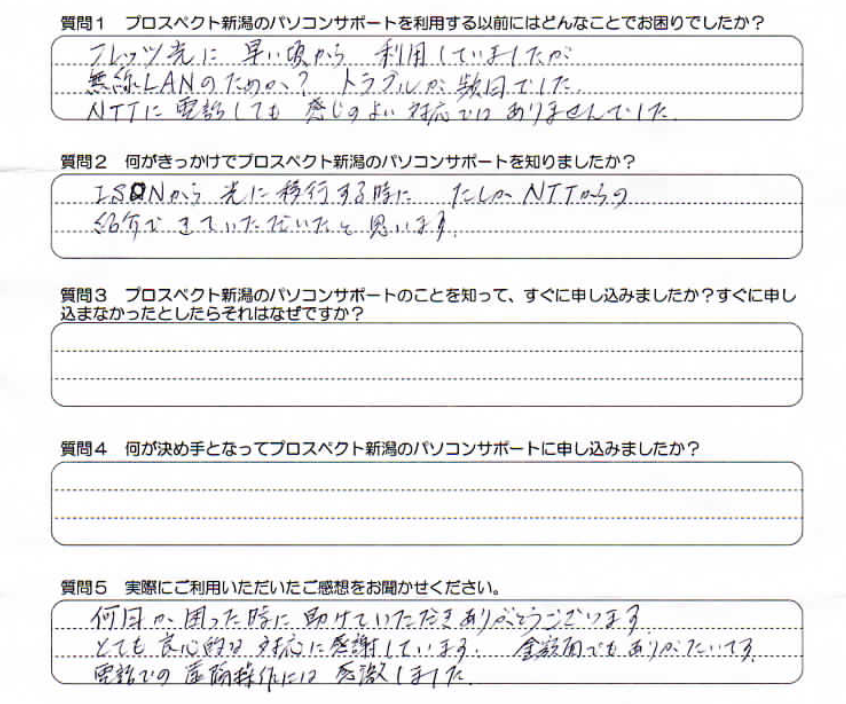 質問1 プロスペクト新潟のパソコンサポートを利用する以前にはどんなことでお困りでしたか?
フレッツ光に 早い頃から 利用していましたが
無線LANのためか、? トラブルが 数回でした.
NTTに電話しても 感じのよい 対応では ありませんでした.
質問2 何がきっかけでプロスペクト新潟のパソコンサポートを知りましたか?
ISDNから 光に 移行する時に たしか NTTからの
紹介で きていただいたと 思います.
質問3 プロスペクト新潟のパソコンサポートのことを知って、すぐに申し込みましたか?すぐに申し
込まなかったとしたらそれはなぜですか?
質問4 何が決め手となってプロスペクト新潟のパソコンサポートに申し込みましたか?
質問5 実際にご利用いただいたご感想をお聞かせください。
何回か 困った時に 助けていただきありがとうございます
とても 良心的な 対応に感謝しています. 金額面でもありがたいです.
電話での 操作には 感激しました.